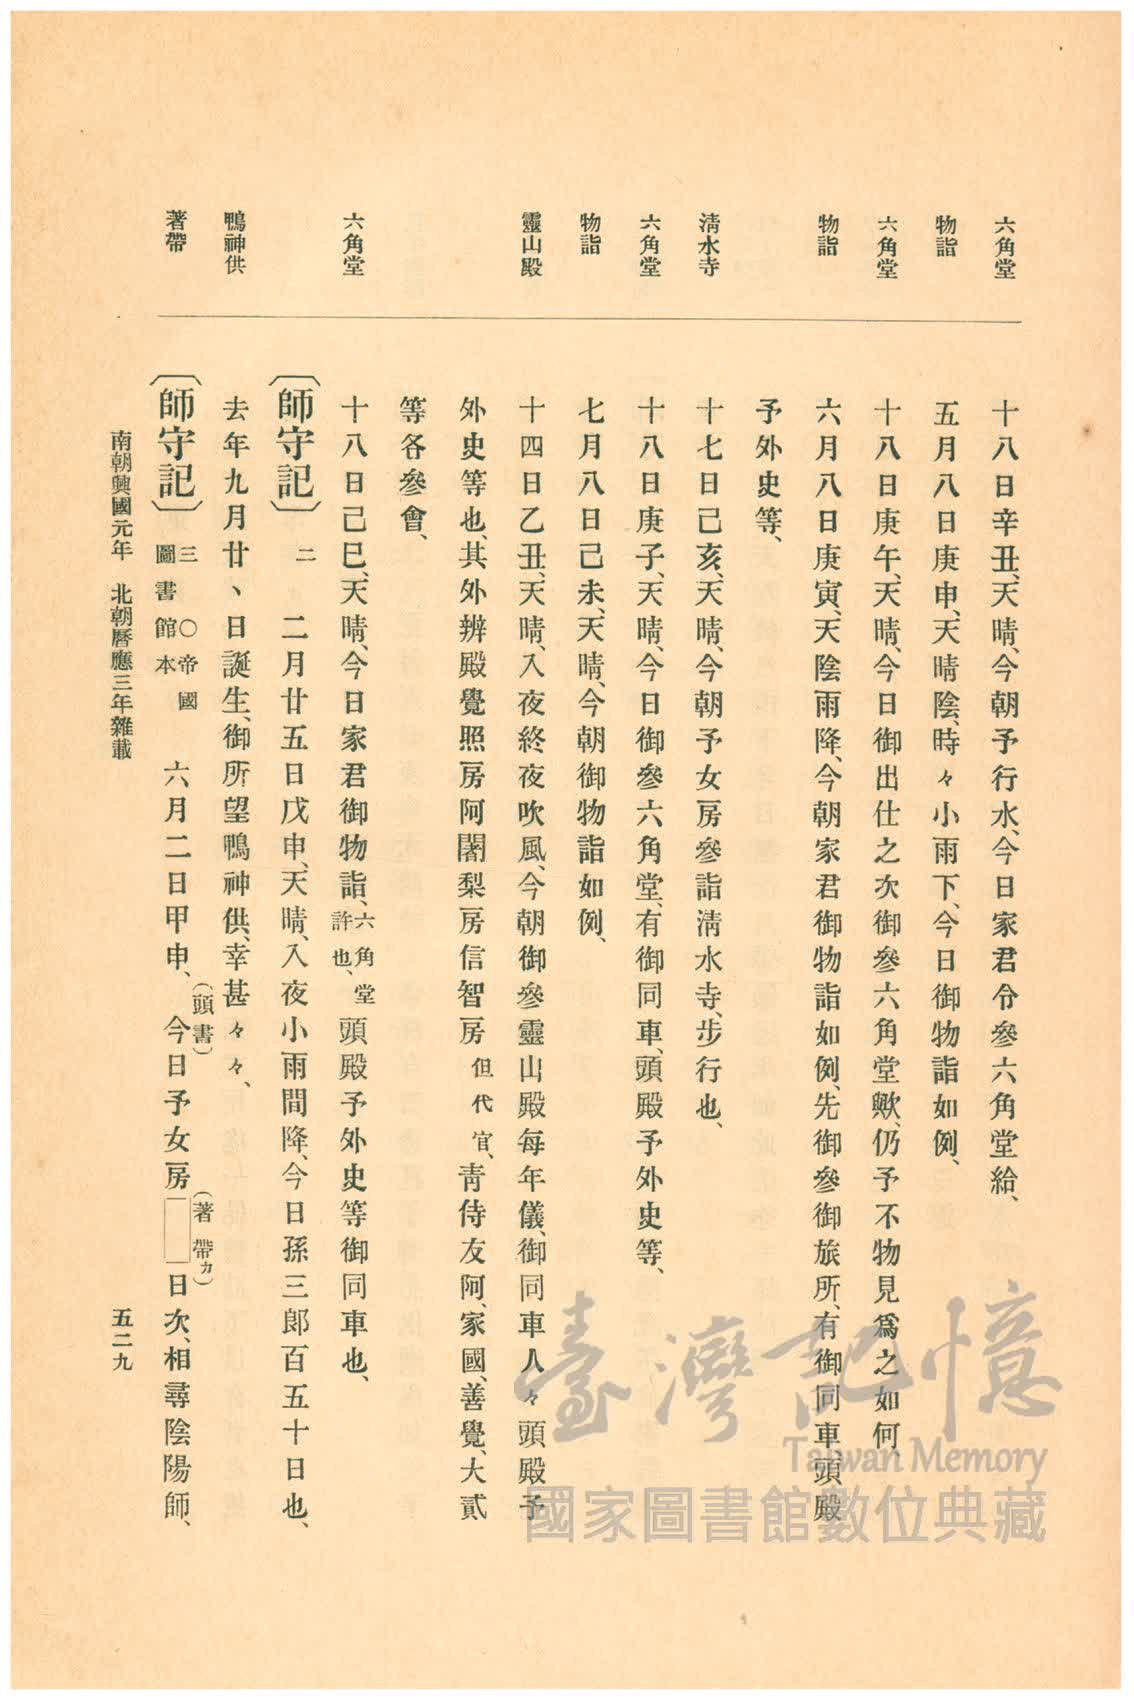 六角堂
物詣
六角堂
物詣
淸水寺
六角堂
物詣
靈山殿
六角堂
鴨神供
著帶
十八日辛丑、天晴、今朝予行水、今日家君令參六角堂給、
五月八日庚申、天晴陰、時々小雨下、今日御物詣如例、
十八日庚午、天晴、今日御出仕之次御參六角堂歟、仍予不物見爲之如何、
六月八日庚寅、天陰雨降、今朝家君御物詣如例、先御參御旅所、有御同車、頭殿
予外史等、
十七日己亥、天晴、今朝予女房參詣淸水寺、步行也、
十八日庚子、天晴、今日御參六角堂、有御同車、頭殿予外史等、
七月八日己未、天晴、今朝御物詣如例、
十四日乙丑、天晴、入夜終夜吹風、今朝御參靈山殿每年儀、御同車人々頭殿予
外史等也、其外辨殿覺照房阿闍梨房信智房但代官、靑侍友阿、家國、善覺、大貳
等各參會、
十八日己巳、天晴、今日家君御物詣、六角堂許也、頭殿予外史等御同車也、
〔師守記〕 二 二月廿五日戊申、天晴、入夜小雨間降、今日孫三郎百五十日也、
去年九月廿、日誕生、御所望鴨神供、幸甚々々、
〔師守記〕 三 〇帝國圖書館本 六月二日甲申、(頭書)今日予女房□(著帶カ)日次、相尋陰陽師、
南朝興國元年 北朝曆應三年雜載
五二九
臺灣記憶
Taiwan Memory
國家圖書館數位典藏